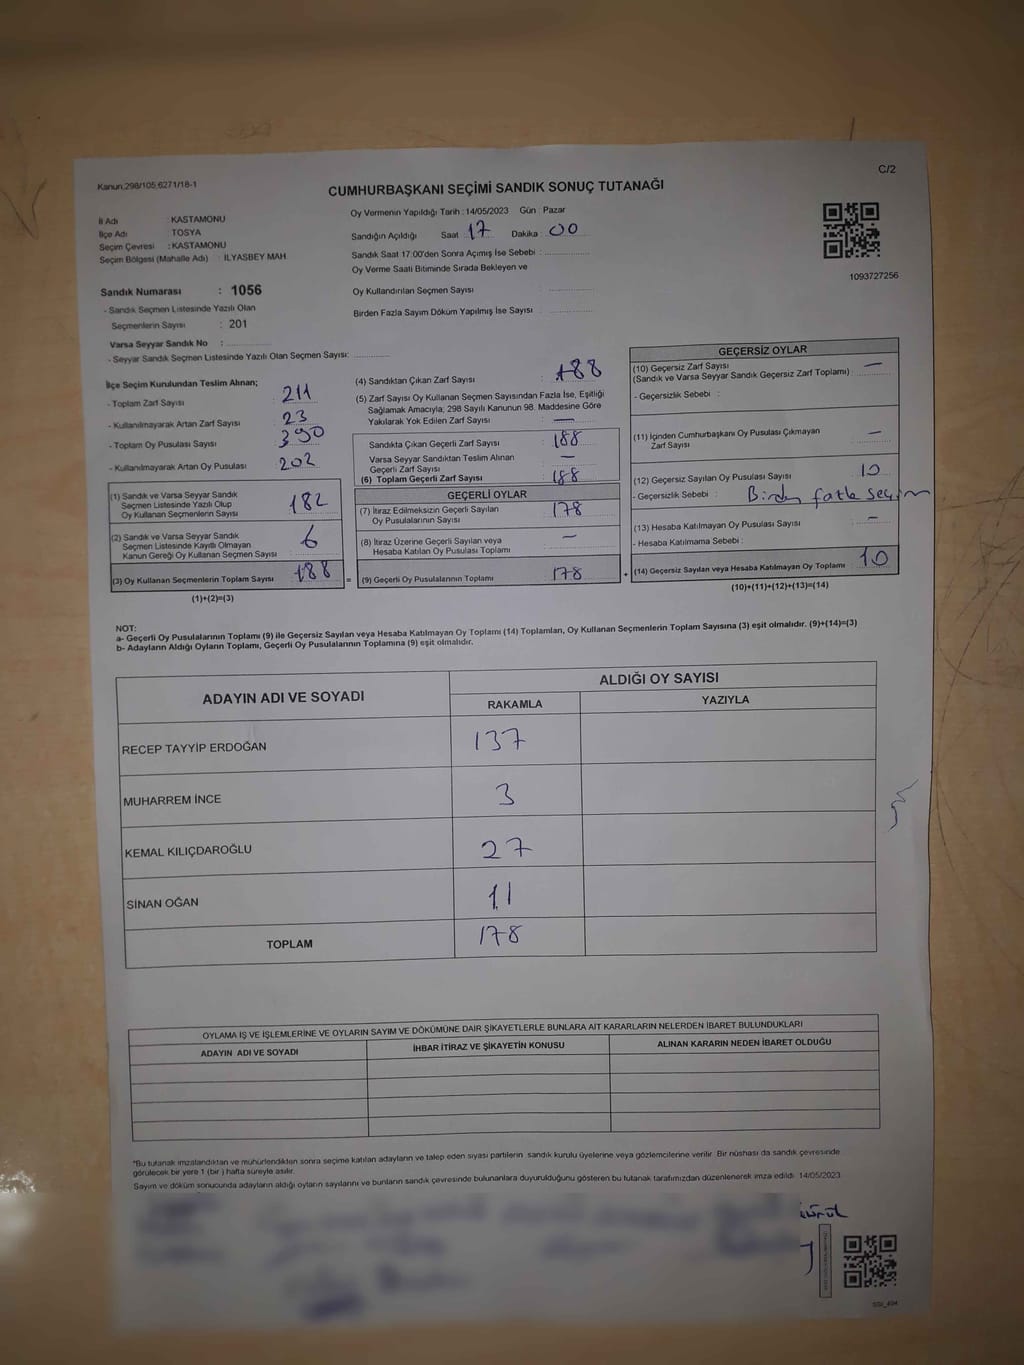 Kanun,298/105,6271/18-1
C/2
CUMHURBAŞKANI SEÇİMİ SANDIK SONUÇ TUTANAĞI
İl Adı : KASTAMONU
İlçe Adı : TOSYA
Seçim Çevresi : KASTAMONU
Seçim Bölgesi (Mahalle Adı) : İLYASBEY MAH
Sandık Numarası : 1056
- Sandık Seçmen Listesinde Yazılı Olan
Seçmenlerin Sayısı : 201
Varsa Seyyar Sandık No :
- Seyyar Sandık Seçmen Listesinde Yazılı Olan Seçmen Sayısı:
Oy Vermenin Yapıldığı Tarih : 14/05/2023 Gün : Pazar
Sandığın Açıldığı Saat 17 Dakika : 00
Sandık Saat 17:00'den Sonra Açımış İse Sebebi :
Oy Verme Saati Bitiminde Sırada Bekleyen ve
Oy Kullandırılan Seçmen Sayısı :
Birden Fazla Sayım Döküm Yapılmış İse Sayısı :
1093727256
İlçe Seçim Kurulundan Teslim Alınan;
- Toplam Zarf Sayısı : 211
- Kullanılmayarak Artan Zarf Sayısı : 23
- Toplam Oy Pusulası Sayısı : 390
- Kullanılmayarak Artan Oy Pusulası : 202
(1) Sandık ve Varsa Seyyar Sandık
Seçmen Listesinde Yazılı Olup
Oy Kullanan Seçmenlerin Sayısı 182
(2) Sandık ve Varsa Seyyar Sandık
Seçmen Listesinde Kayıtlı Olmayan
Kanun Gereği Oy Kullanan Seçmen Sayısı 6
(3) Oy Kullanan Seçmenlerin Toplam Sayısı 188 =
(1)+(2)=(3)
(4) Sandıktan Çıkan Zarf Sayısı : 188
(5) Zarf Sayısı Oy Kullanan Seçmen Sayısından Fazla İse, Eşitliği
Sağlamak Amacıyla; 298 Sayılı Kanunun 98. Maddesine Göre
Yakılarak Yok Edilen Zarf Sayısı : —
Sandıkta Çıkan Geçerli Zarf Sayısı : 188
Varsa Seyyar Sandıktan Teslim Alınan
Geçerli Zarf Sayısı : —
(6) Toplam Geçerli Zarf Sayısı : 188
GEÇERLİ OYLAR
(7) İtiraz Edilmeksizin Geçerli Sayılan
Oy Pusulalarının Sayısı : 178
(8) İtiraz Üzerine Geçerli Sayılan veya
Hesaba Katılan Oy Pusulası Toplamı : —
(9) Geçerli Oy Pusulalarının Toplamı 178 +
GEÇERSİZ OYLAR
(10) Geçersiz Zarf Sayısı
(Sandık ve Varsa Seyyar Sandık Geçersiz Zarf Toplamı) : —
- Geçersizlik Sebebi :
(11) İçinden Cumhurbaşkanı Oy Pusulası Çıkmayan
Zarf Sayısı : —
(12) Geçersiz Sayılan Oy Pusulası Sayısı : 10
- Geçersizlik Sebebi : Birden fazla seçim
(13) Hesaba Katılmayan Oy Pusulası Sayısı : —
- Hesaba Katılmama Sebebi :
(14) Geçersiz Sayılan veya Hesaba Katılmayan Oy Toplamı : 10
(10)+(11)+(12)+(13)=(14)
NOT:
a- Geçerli Oy Pusulalarının Toplamı (9) ile Geçersiz Sayılan veya Hesaba Katılmayan Oy Toplamı (14) Toplamları, Oy Kullanan Seçmenlerin Toplam Sayısına (3) eşit olmalıdır. (9)+(14)=(3)
b- Adayların Aldığı Oyların Toplamı, Geçerli Oy Pusulalarının Toplamına (9) eşit olmalıdır.
ADAYIN ADI VE SOYADI
ALDIĞI OY SAYISI
RAKAMLA YAZIYLA
RECEP TAYYİP ERDOĞAN 137
MUHARREM İNCE 3
KEMAL KILIÇDAROĞLU 27
SİNAN OĞAN 11
TOPLAM 178
OYLAMA İŞ VE İŞLEMLERİNE VE OYLARIN SAYIM VE DÖKÜMÜNE DAİR ŞİKAYETLERLE BUNLARA AİT KARARLARIN NELERDEN İBARET BULUNDUKLARI
ADAYIN ADI VE SOYADI İHBAR İTİRAZ VE ŞİKAYETİN KONUSU ALINAN KARARIN NEDEN İBARET OLDUĞU
*Bu tutanak imzalandıktan ve mühürlendikten sonra seçime katılan adayların ve talep eden siyasi partilerin sandık kurulu üyelerine veya gözlemcilerine verilir. Bir nüshası da sandık çevresinde
görülecek bir yere 1 (bir ) hafta süreyle asılır.
Sayım ve döküm sonucunda adayların aldığı oyların sayılarını ve bunların sandık çevresinde bulunanlara duyurulduğunu gösteren bu tutanak tarafımızdan düzenlenerek imza edildi. 14/05/2023